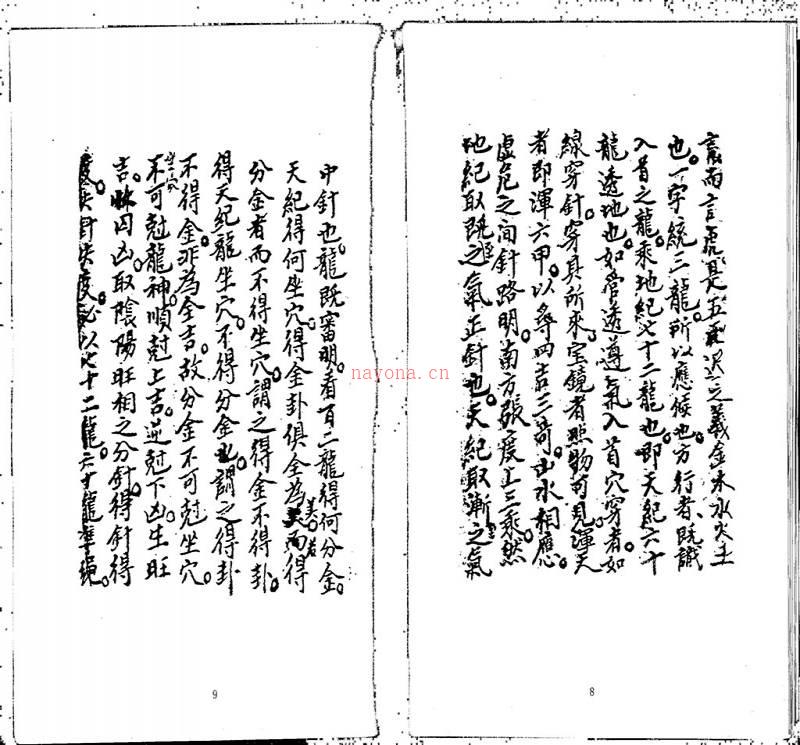 言而言虎是五
之義金木水火土
也。一字統三龍所以應候地方行者既識
入首之龍乘地紀七十二龍也即天紀六十
龍透地也如管透導氣入首穴穿者如
線穿針穿其所來。宝鏡者照物可見渾天
者即渾六甲。以尋四吉三奇山水相應。
虛危之间針路明南方張度上三乘。然
地紀取既進之氣正針也天紀取漸之氣
8
中針也。龍既審明。看百二龍得何分金。
天紀得何坐穴得金卦俱全為美而得
美者
分金者而不得坐穴。謂之得金不得卦。
得天紀龍坐穴。不得分金。謂之得卦
不得金。非為全吉。故分金不可尅坐穴。
坐穴
不可尅龍神。順尅上吉。逆尅下凶。生旺
吉。休囚凶。取陰陽旺相之分針。得針得
以七十二龍。六十龍
9
nayona.cn